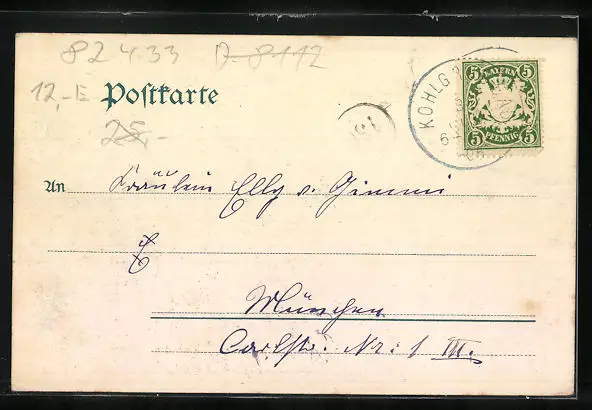 82433 D-8112
12,-E Postkarte
25,-
KOHLGR
6
BAYERN
5 5
5 PFENNIG 5
An Fräulein Elly v. Gimmi
München
Carlstr. Nr: 1 III.